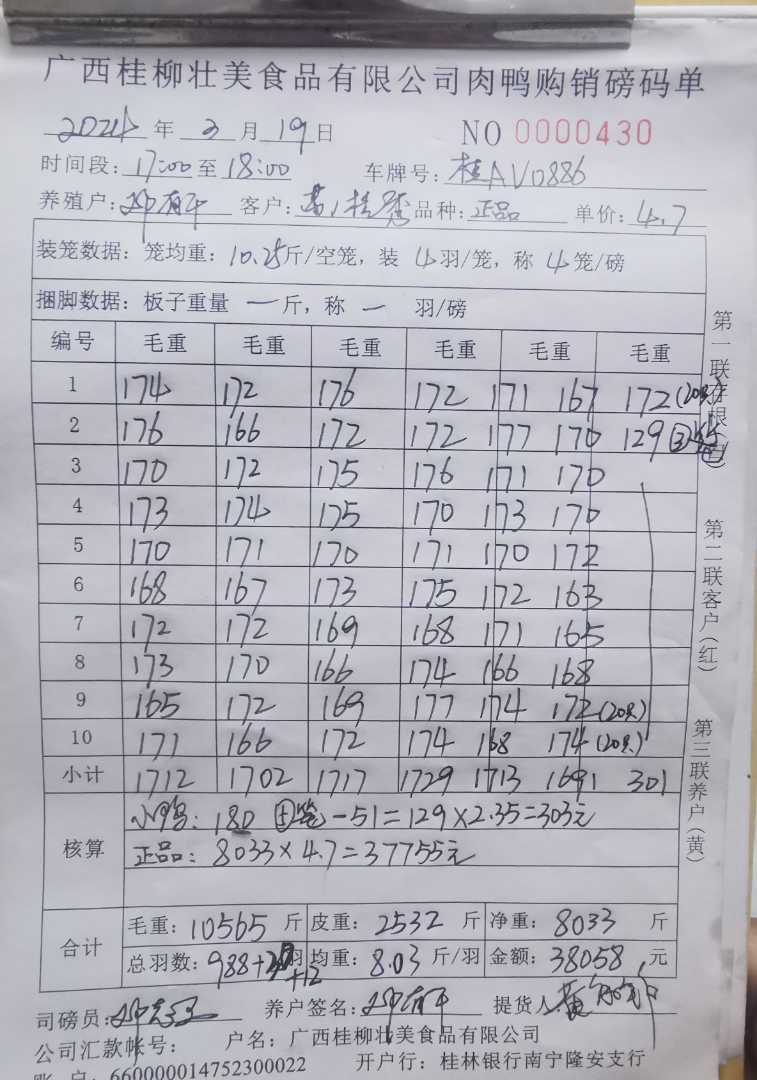 广西桂柳壮美食品有限公司肉鸭购销磅码单
2024年 3月19日 NO 0000430
时间段:17:00至18:00 车牌号:桂AV0886
养殖户: 客户:黄桂秀 品种:正品 单价:4.7
装笼数据:笼均重:10.25斤/空笼,装4羽/笼,称4笼/磅
捆脚数据:板子重量 一斤,称 一 羽/磅
编号 毛重 毛重 毛重 毛重 毛重 毛重
1 174 172 176 172 171 167 172(20只)
2 176 166 172 172 177 170 129 ③笼
3 170 172 175 176 171 170
4 173 174 175 170 173 170
5 170 171 170 171 170 172
6 168 167 173 175 172 163
7 172 172 169 168 171 165
8 173 170 166 174 166 168
9 165 172 169 177 174 172(20只)
10 171 166 172 174 168 174(20只)
小计 1712 1702 1717 1729 1713 1691 301
核算 小鸭:180 笼-51=129×2.35=303元
正品:8033×4.7=37755元
合计 毛重:10565斤 皮重:2532斤 净重:8033斤
总羽数:988+羽 均重:8.03斤/羽 金额:38058元
+12
司磅员: 养户签名: 提货人:黄
公司汇款帐号: 户名:广西桂柳壮美食品有限公司
账 户:660000014752300022 开户行:桂林银行南宁隆安支行
第一联存根(白)
第二联客户(红)
第三联养户(黄)